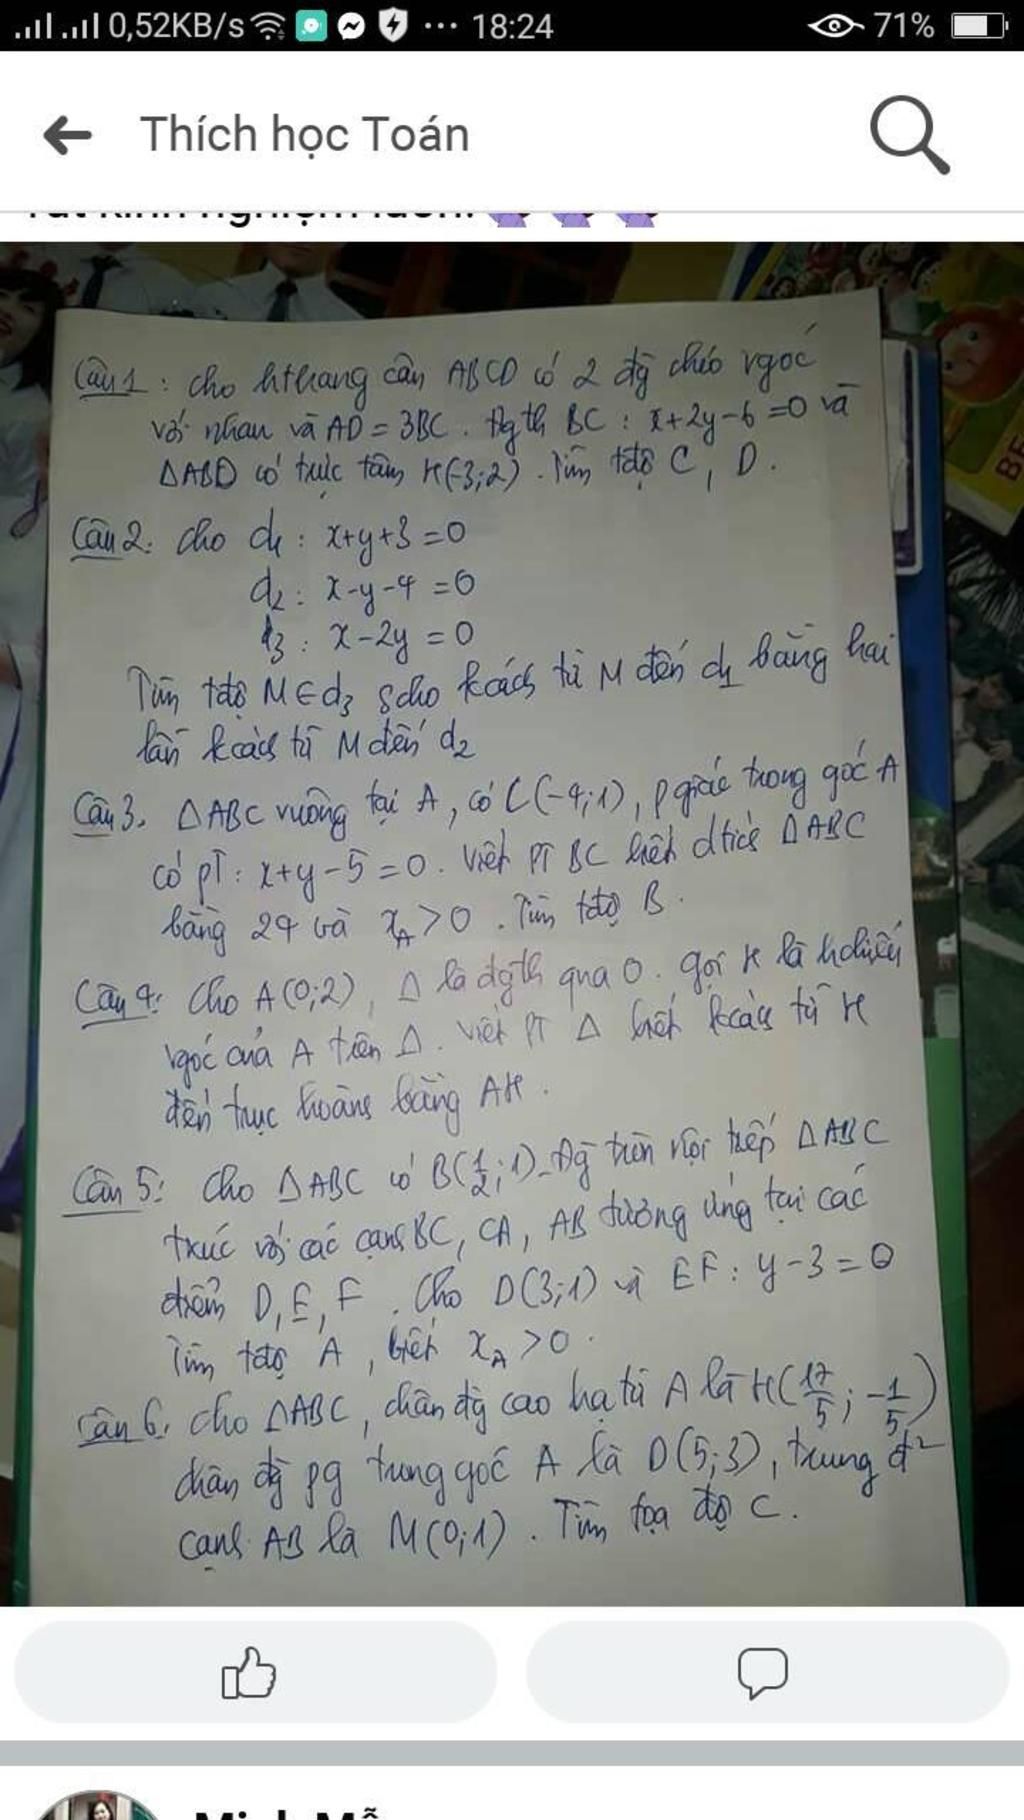 0,52KB/s ... 18:24 71%
Thích học Toán
Câu 1: Cho hthang cân ABCD có 2 đg chéo vgoc
với nhau và AD = 3BC. Đg th BC: x+2y-6=0 và
ΔABD có trực tâm H(-3;2). Tìm tđộ C, D.
Câu 2: Cho d1: x+y+3=0
d2: x-y-4=0
d3: x-2y=0
Tìm tđộ M∈d3 scho kcách từ M đến d1 bằng hai
lần kcách từ M đến d2
Câu 3. ΔABC vuông tại A, có C(-4;1), pgiác trong góc A
có pT: x+y-5=0. Viết PT BC biết dtích ΔABC
bằng 24 và xA>0. Tìm tđộ B.
Câu 4: Cho A(0;2), Δ là đgth qua O. gọi H là hchiếu
vgóc của A trên Δ. Viết PT Δ biết kcách từ H
đến trục hoành bằng AH.
Câu 5: Cho ΔABC có B(1/2;1). Đg tròn nội tiếp ΔABC
txúc với các cạnh BC, CA, AB tương ứng tại các
điểm D, E, F. Cho D(3;1) và EF: y-3=0
Tìm tđộ A, biết xA>0.
Câu 6. Cho ΔABC, chân đg cao hạ từ A là H(17/5; -1/5)
chân đg pg trong góc A là D(5;3), trung đ²
cạnh AB là M(0;1). Tìm tọa độ C.